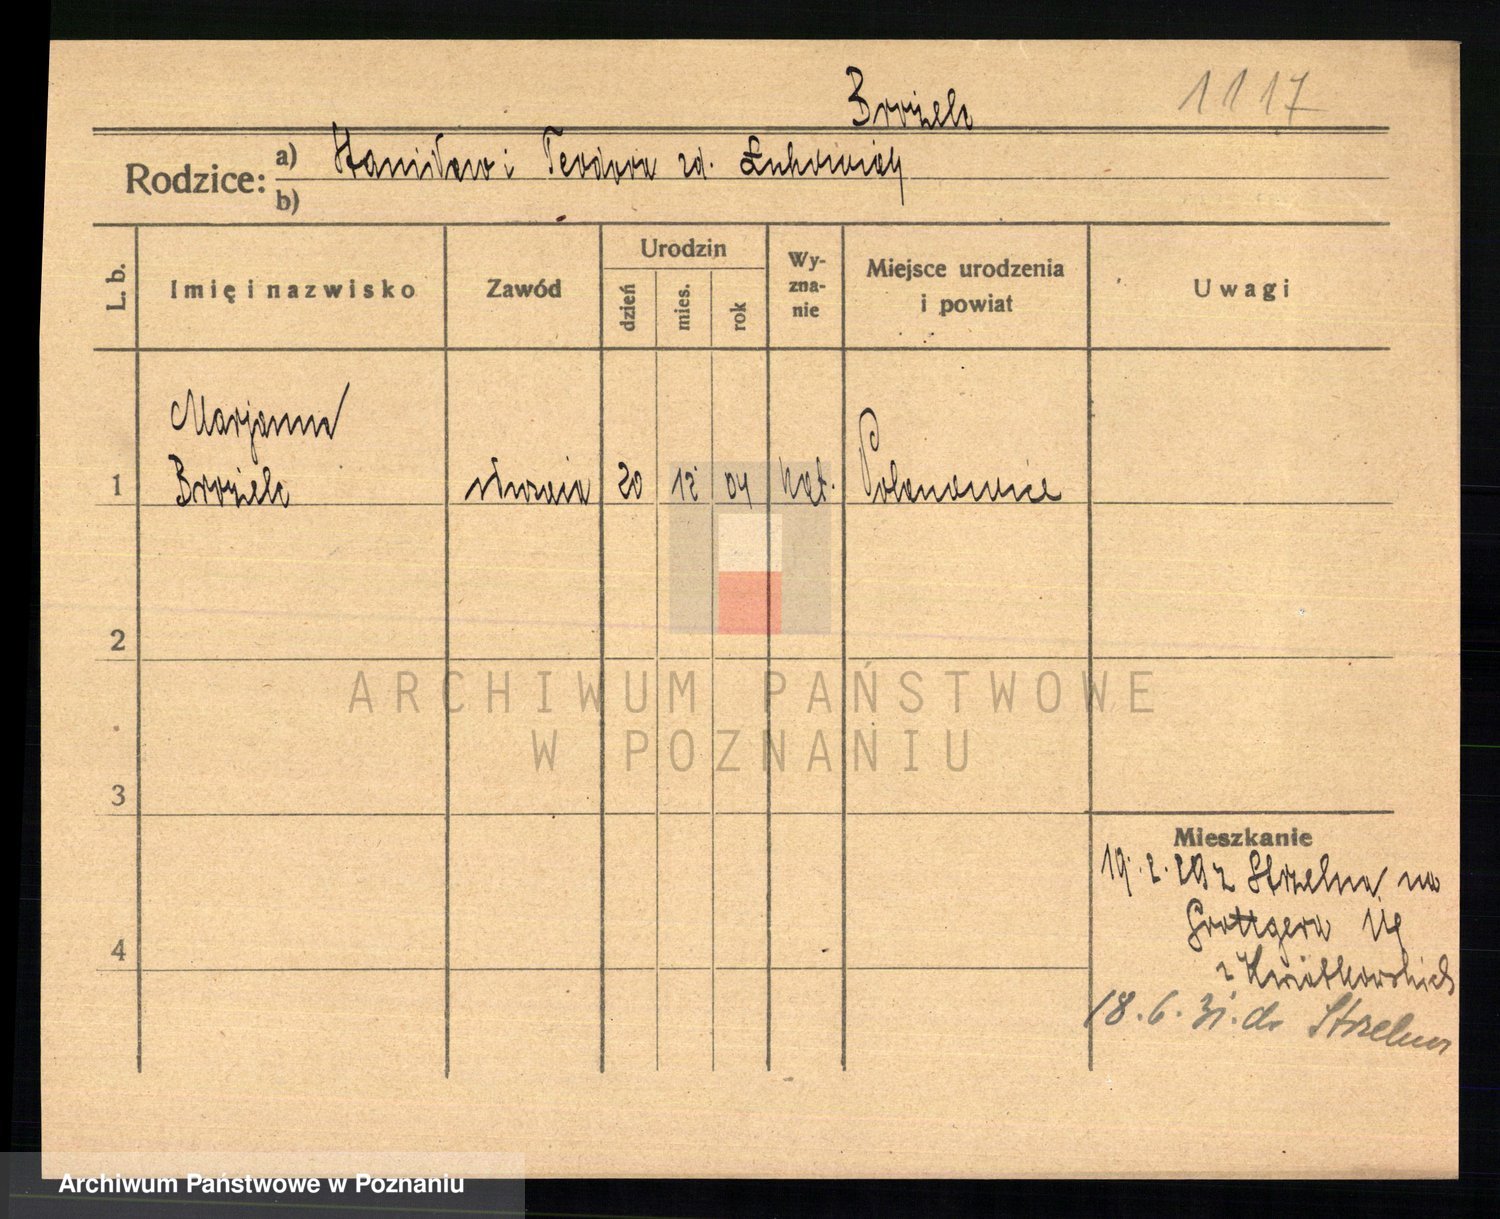 Brożek
1117
Rodzice: a) Stanisław i Teodora zd.
b)
L. b.
Imię i nazwisko
Zawód
Urodzin
dzień
mies.
rok
Wy-
zna-
nie
Miejsce urodzenia
i powiat
Uwagi
Marjanna
1 Brożek 20 12 04 kat. Polanowice
2
3
4
Mieszkanie
Strzelna na
Grottgera
z Kwiatkowskich
18.6.31. do Strzelna
ARCHIWUM PAŃSTWOWE
W POZNANIU
Archiwum Państwowe w Poznaniu